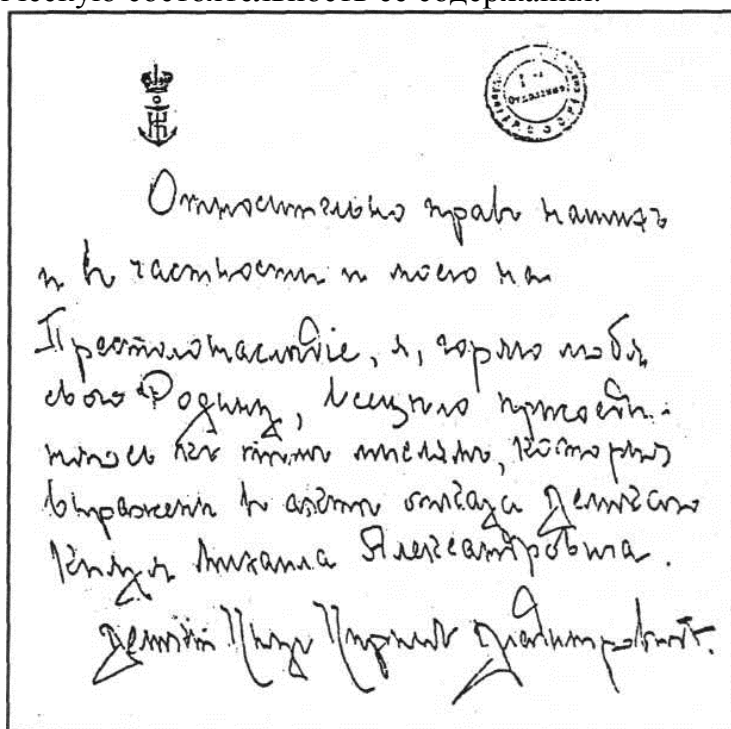 ческую состоятельность ее содержания.
Относительно правъ нашихъ
и въ частности и моего на
Престолонаслѣдіе, я, горячо любя
свою Родину, всецѣло присоеди-
няюсь къ тѣмъ мыслямъ, которыя
выражены въ актѣ отказа Великаго
Князя Михаила Александровича.
Великій Князь Кириллъ Владиміровичъ.